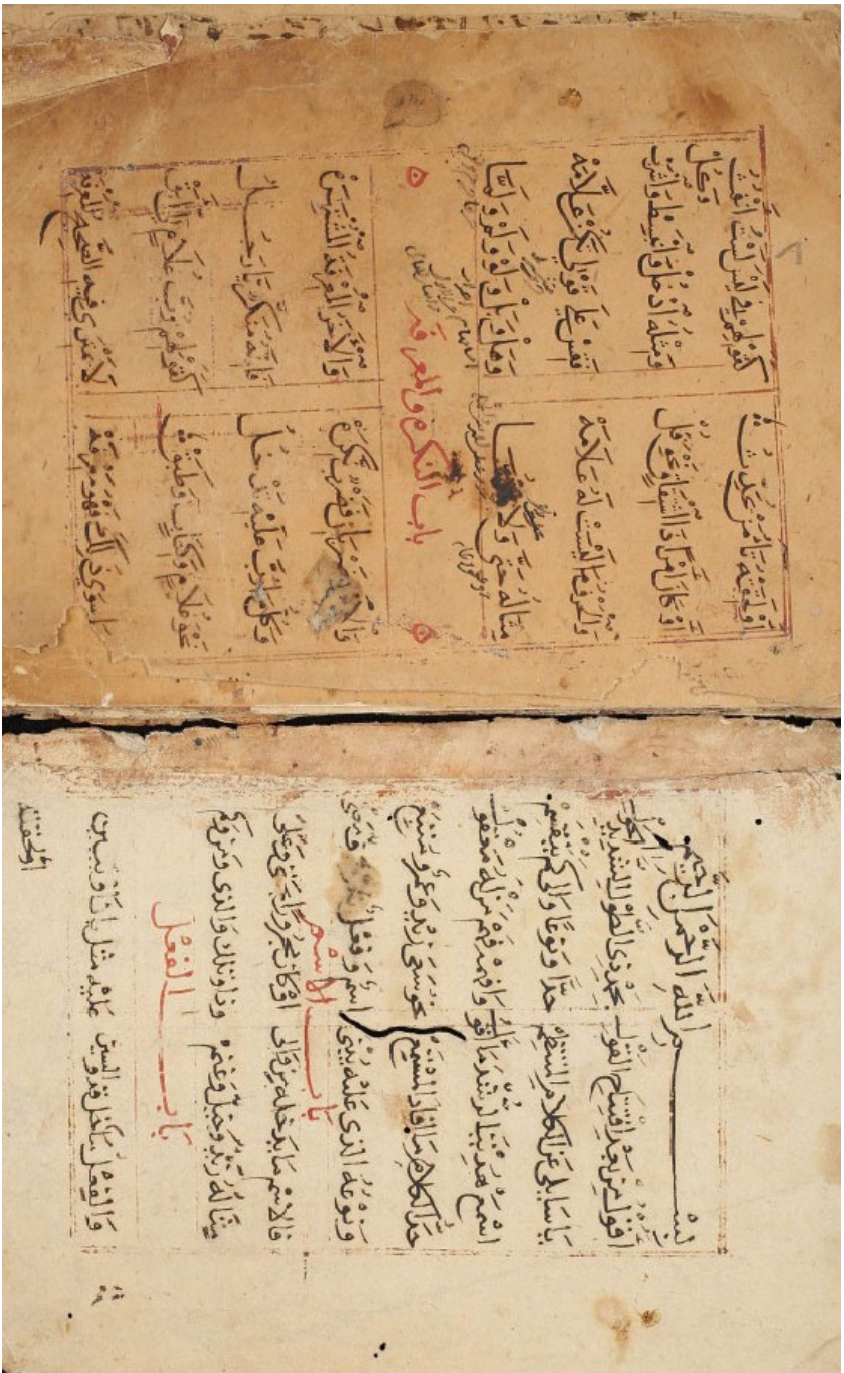 بسم الله الرحمن الرحيم
اقول من بعد افتتاح القول بحمد ذي الطول الشديد الحول
يا سايلي عن الكلام المنتظم حدا ونوعا والى كم ينقسم
اسمع هديت الرشد ما اقول وافهمه فهم من له معقول
حد الكلام ما افاد المستمع نحو سعى زيد وعمرو متبع
ونوعه الذي عليه يبنى اسم وفعل ثم حرف معنى
باب الاسم
فالاسم ما يدخله من والى او كان مجرورا بحتى وعلى
مثاله زيد وخيل وغنم وذا وتلك والذي ومن وكم
باب الفعل
والفعل ما دخل قد والسين عليه مثل بان او يبين
اولحقته
اولحقته تاء من يحدث كقولهم في ليس لست انفث
او كان امرا ذا اشتقاق نحو قل ومثله ادخل وانبسط واشرب وكل
والحرف ما ليست له علامه فقس على قولي تكن علامه
مثاله حتى ولا وثما وهل وبل ولو ولم ولما
باب النكره والمعرفه
والاسم ضربان فضرب نكره والاخر المعرفة المشتهره
وكل ما رب عليه تدخل فانه منكر يا رجل
نحو غلام وكتاب وطبق كقولهم رب غلام لي ابق
وما سوى ذلك فهو معرفه لا يمتري فيه الصحيح المعرفه